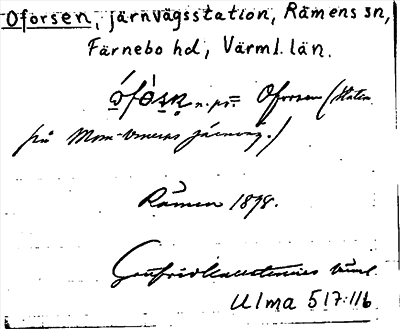 Oforsen, järnvägsstation, Rämens sn,
Färnebo hd, Värml. län.
n. pr. = Oforsen (station
på Mora-Vänerns järnväg.)
Rämen 1898.
Värml.
Ulma 517:116